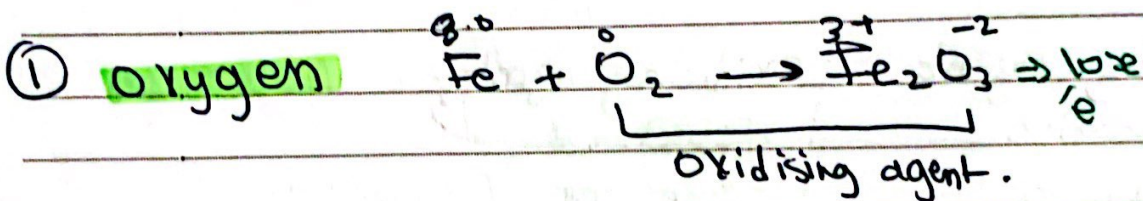 ① oxygen Fe + O₂ → Fe₂O₃ ⇒ lose
0 3+ -2 'e
oxidising agent.